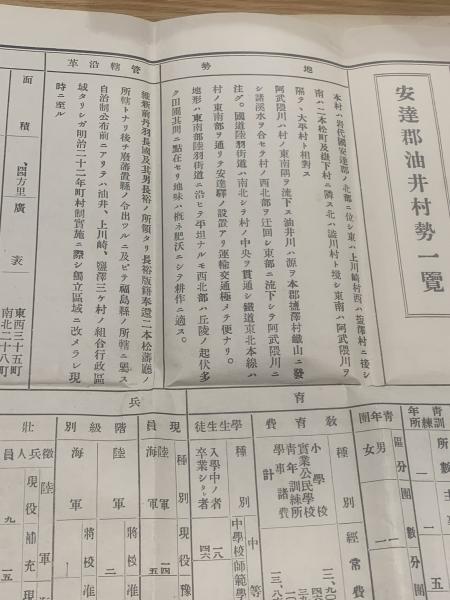 安達郡油井村勢一覽
地勢
本村ハ岩代國安達郡ノ北部ニ位シ東ハ上川崎村西ハ塩澤村ニ接シ
南ハ二本松町及嶽下村ニ隣ス北ハ澁川村ト境シ東南ハ阿武隈川ヲ
隔テ、大平村ト相對ス
阿武隈川ハ村ノ東南隅ヲ流下ス油井川ハ源ヲ本郡塩澤村鐵山ニ發
シ諸溪水ヲ合セテ村ノ西北部ヲ迂回シ東部ニ流下シテ阿武隈川ニ
注グ。國道陸羽街道ハ南北シテ村ノ中央ヲ貫通シ鐵道東北本線ハ
村ノ東南部ヲ通リテ安達驛ノ設置アリ運輸交通極メテ便ナリ。
地形ハ東南部陸羽街道ニ沿ヒテ平坦ナルモ西北部ハ丘陵ノ起伏多
ク田圃其間ニ點在セリ地味ハ概ネ肥沃ニシテ耕作ニ適ス。
管轄沿革
維新前丹羽長國及其男長裕ノ所領タリ長裕版籍奉還二本松藩廳ノ
所轄トナリ後チ廢藩置縣ノ令出ヅルニ及ビテ福島縣ノ所轄ニ異ス
自治制公布前ニアリテハ油井、上川崎、鹽澤三ケ村ノ組合行政區
域タリシガ明治二十二年町村制實施ニ際シ獨立區域ニ改メラレ現
時ニ至ル
面積
、四方里
廣袤
東西三十五町
南北二十八町
青訓
年練
所
所數
一
主
一
五
青年團
區分
團數
團
男
一
女
一
教育
教育費
種別
經常費
小學校
實業公民學校
青年訓練所
學事諸費
計
學生生徒
種別
中等
中學校
師範學
入學中ノ者
一八
卒業シタル者
四六
兵
現員
種別
現役
豫
陸軍
一四
海軍
五
階級別
陸軍
將校准
二
海軍
將校准
壯
徵兵人員
陸軍
現役
九
補充
一五
現
海